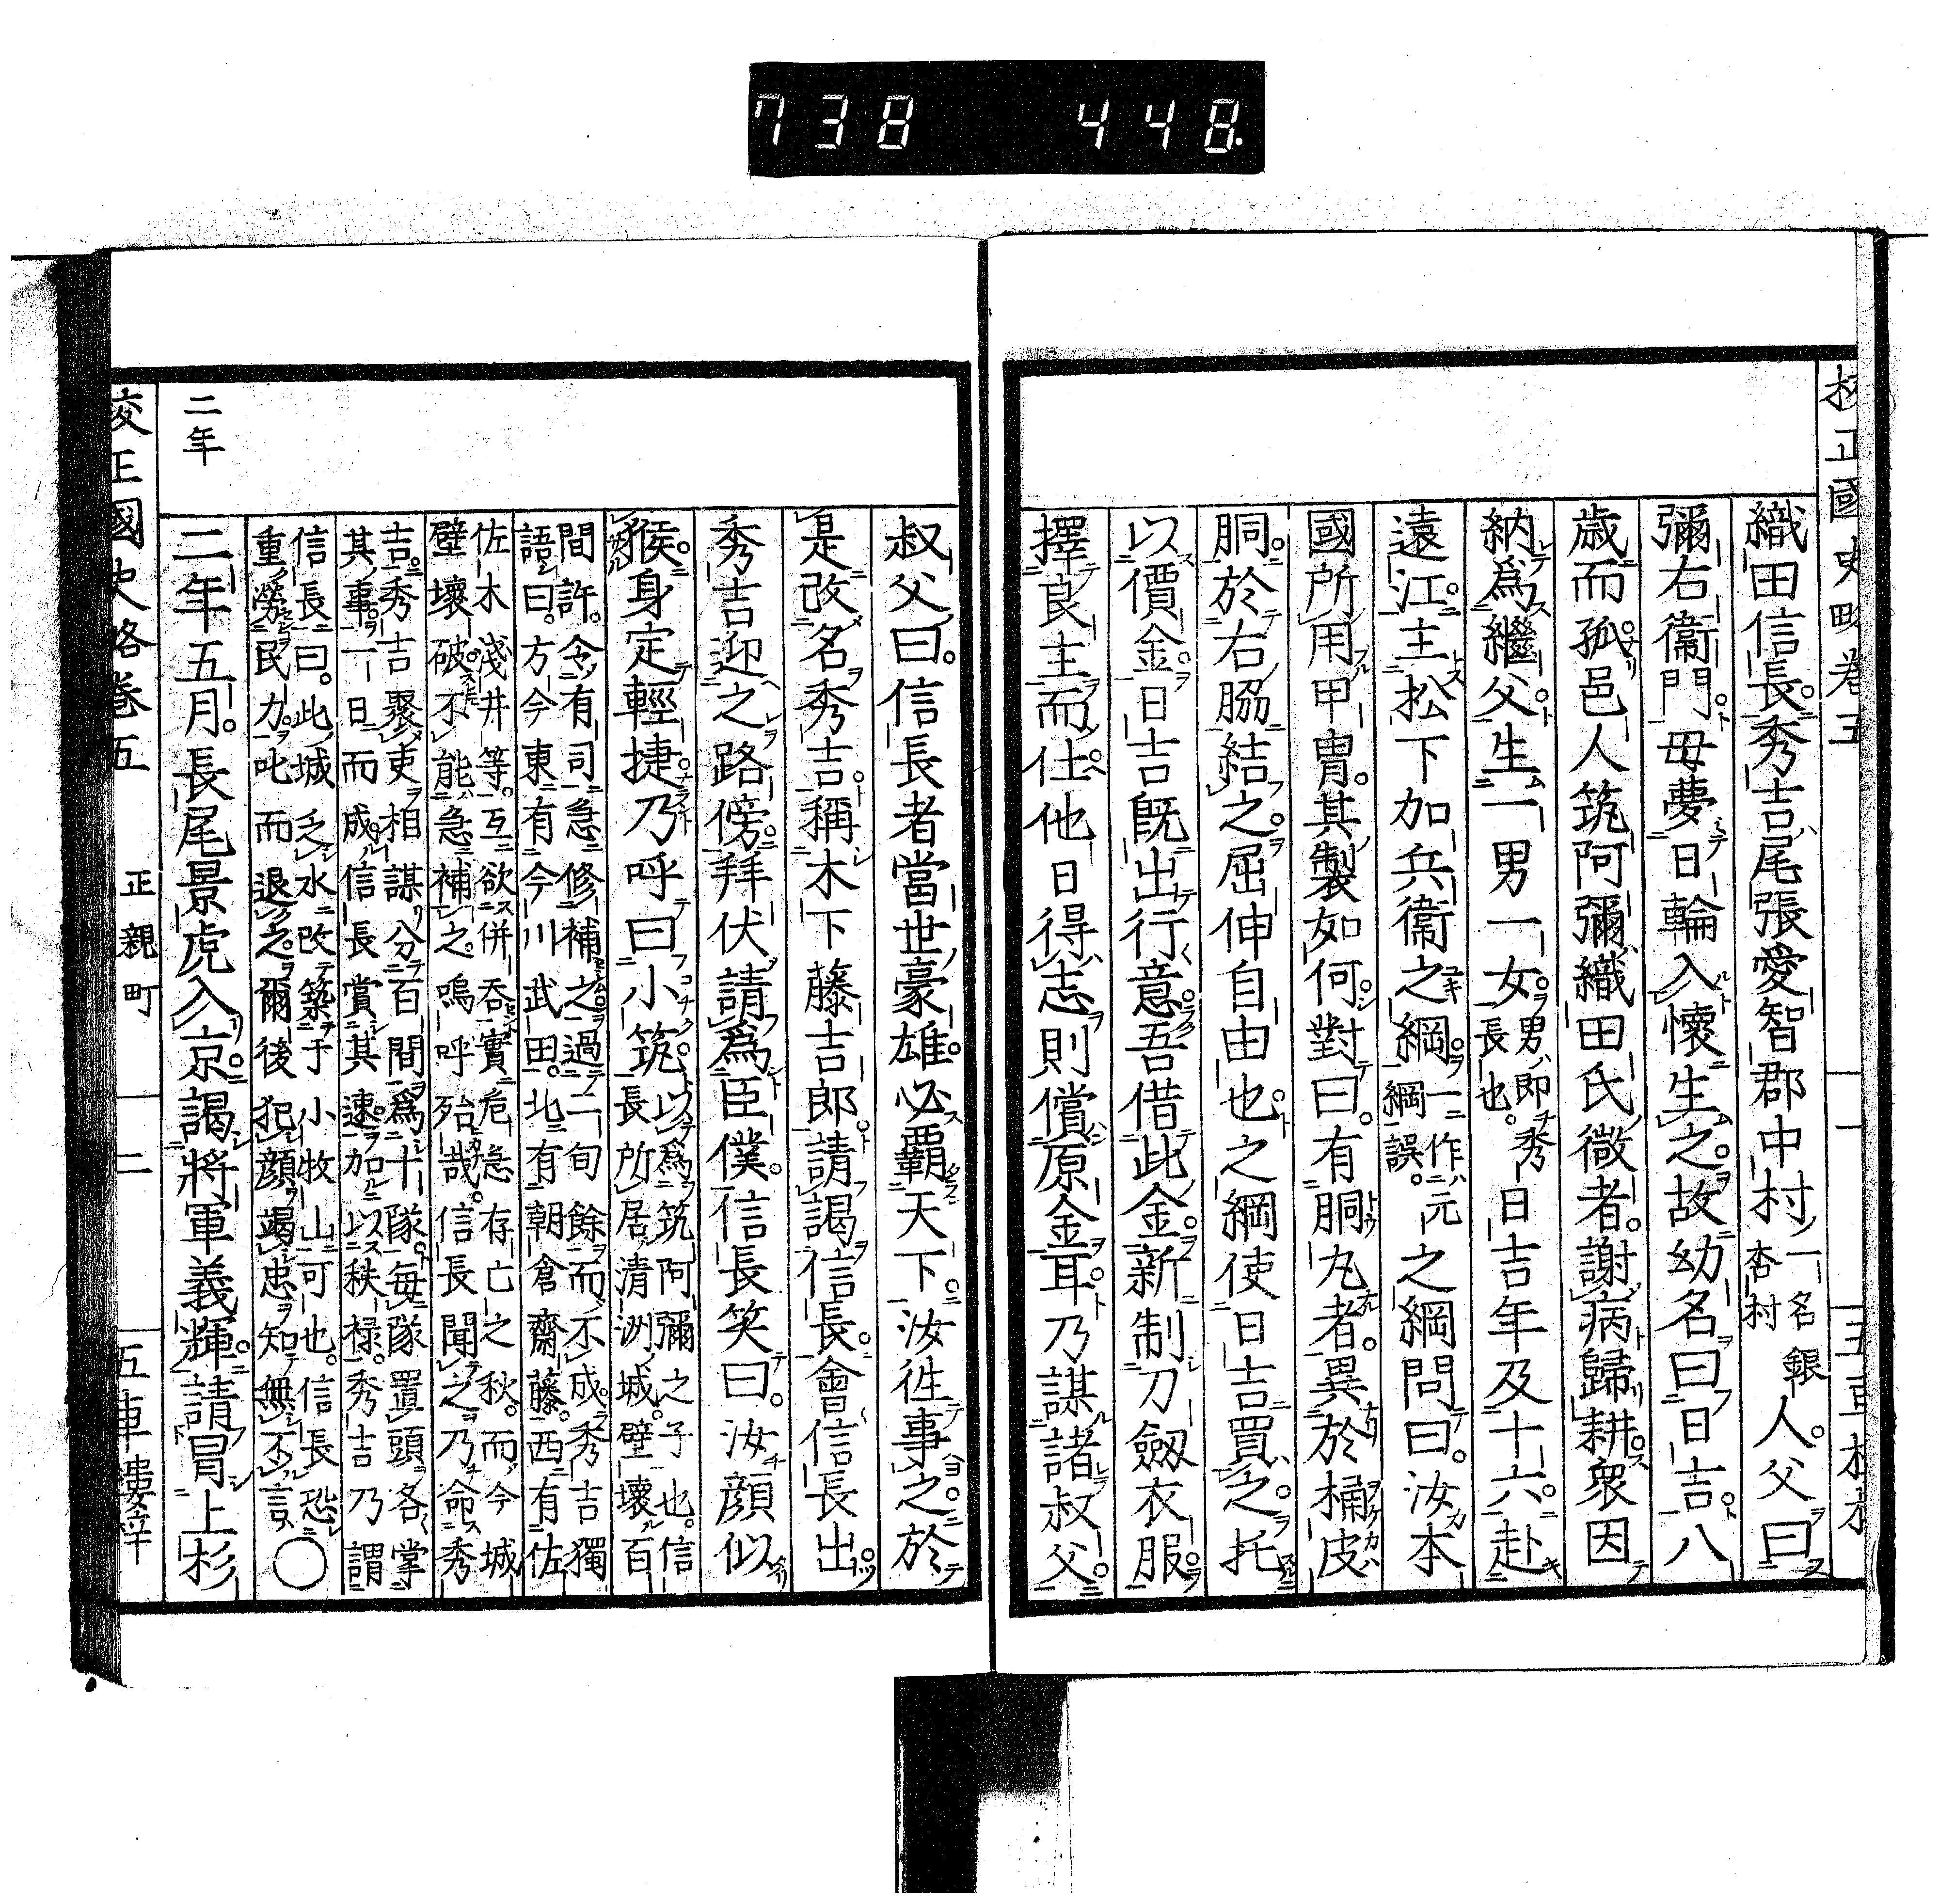 738 448.
校正國史略卷五
一
織田信長。秀吉尾張愛智郡中村一名銀杏村人。父曰
彌右衞門。母夢日輪入懷生之。故幼名曰日吉。八
歲而孤。邑人筑阿彌織田氏微者。謝病歸耕。衆因
納爲繼父。生一男一女。男即秀長也。日吉年及十六。赴
遠江。主松下加兵衞之綱。一作元綱誤。之綱問曰。汝本
國所用甲冑。其製如何。對曰。有胴丸者。異於桶皮
胴。於右脇結之。屈伸自由也。之綱使日吉買之。托
以價金。日吉既出行意。吾借此金。新制刀劔衣服。
擇良主而仕。他日得志。則償原金耳。乃謀諸叔父。
叔父曰。信長者當世豪雄。必覇天下。汝往事之。於
是改名秀吉。稱木下藤吉郎。請謁信長。會信長出。
秀吉迎之路傍。拜伏請爲臣僕。信長笑曰。汝顏似
猴。身定輕捷。乃呼曰小筑。以爲筑阿彌之子也。信長所居清洲城。壁壞百
間許。令有司急修補之。過二旬餘而不成。秀吉獨語曰。方今東有今川武田。北有朝倉齋藤。西有佐
佐木淺井等。互欲併吞。實危急存亡之秋。而今城壁壞破。不能急補之。嗚呼殆哉。信長聞之。乃命秀
吉。秀吉聚吏相謀。分百間爲十隊。每隊置頭各掌其事。一日而成。信長賞其速。加以秩祿。秀吉乃謂
信長曰。此城乏水。改築于小牧山可也。信長恐重勞民力。叱而退之。爾後犯顏竭忠。知無不言。○
二年
二年五月。長尾景虎入京。謁將軍義輝。請冒上杉
校正國史略卷五
正親町
二
五車樓梓